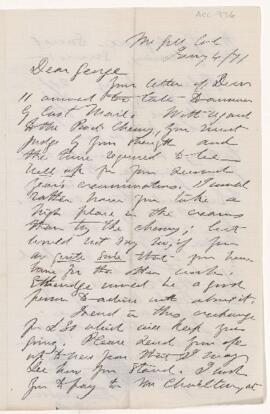 ACC 976
McGill Col
Jany 4/71
Dear George
Your letter of Decr
11 arrived too late to answer
by last Mail. With regard
to the Prac Chemy, you must
judge by your strength and
the time required to be
well up for your second
years examinations. I would
rather have you take a
high place in the exams
than try the chemy; but
would not say no, if you
are quite sure that you have
time for the other work.
Etheridge would be a good
person to advise with about it.
I send in this exchange
for £50 which will keep you
going. Please send your a/c
up to New Year that I may
see how you stand. I wish
you to pay to Mr Charlton, at